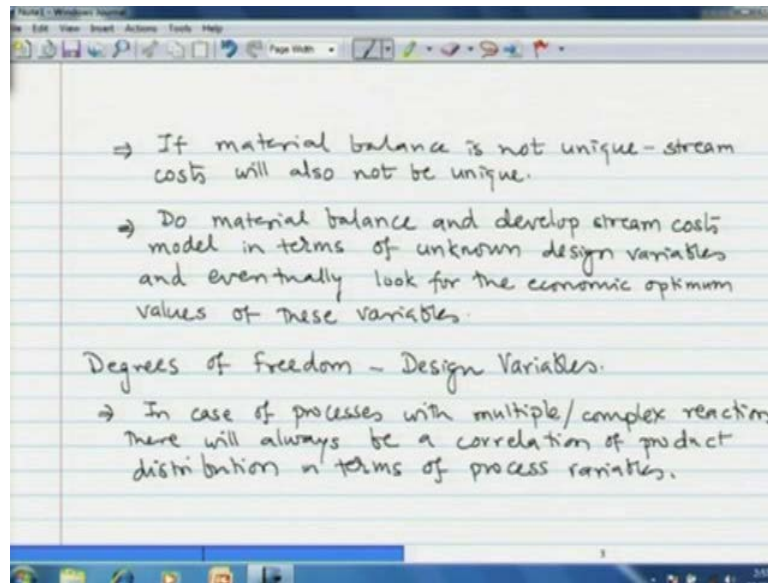 Note1 - Windows Journal
Edit View Insert Actions Tools Help
Page Width
⇒ If material balance is not unique - stream
costs will also not be unique.
⇒ Do material balance and develop stream costs
model in terms of unknown design variables
and eventually look for the economic optimum
values of these variables.
Degrees of freedom - Design Variables.
⇒ In case of processes with multiple/complex reaction
There will always be a correlation of product
distribution in terms of process variables.
3